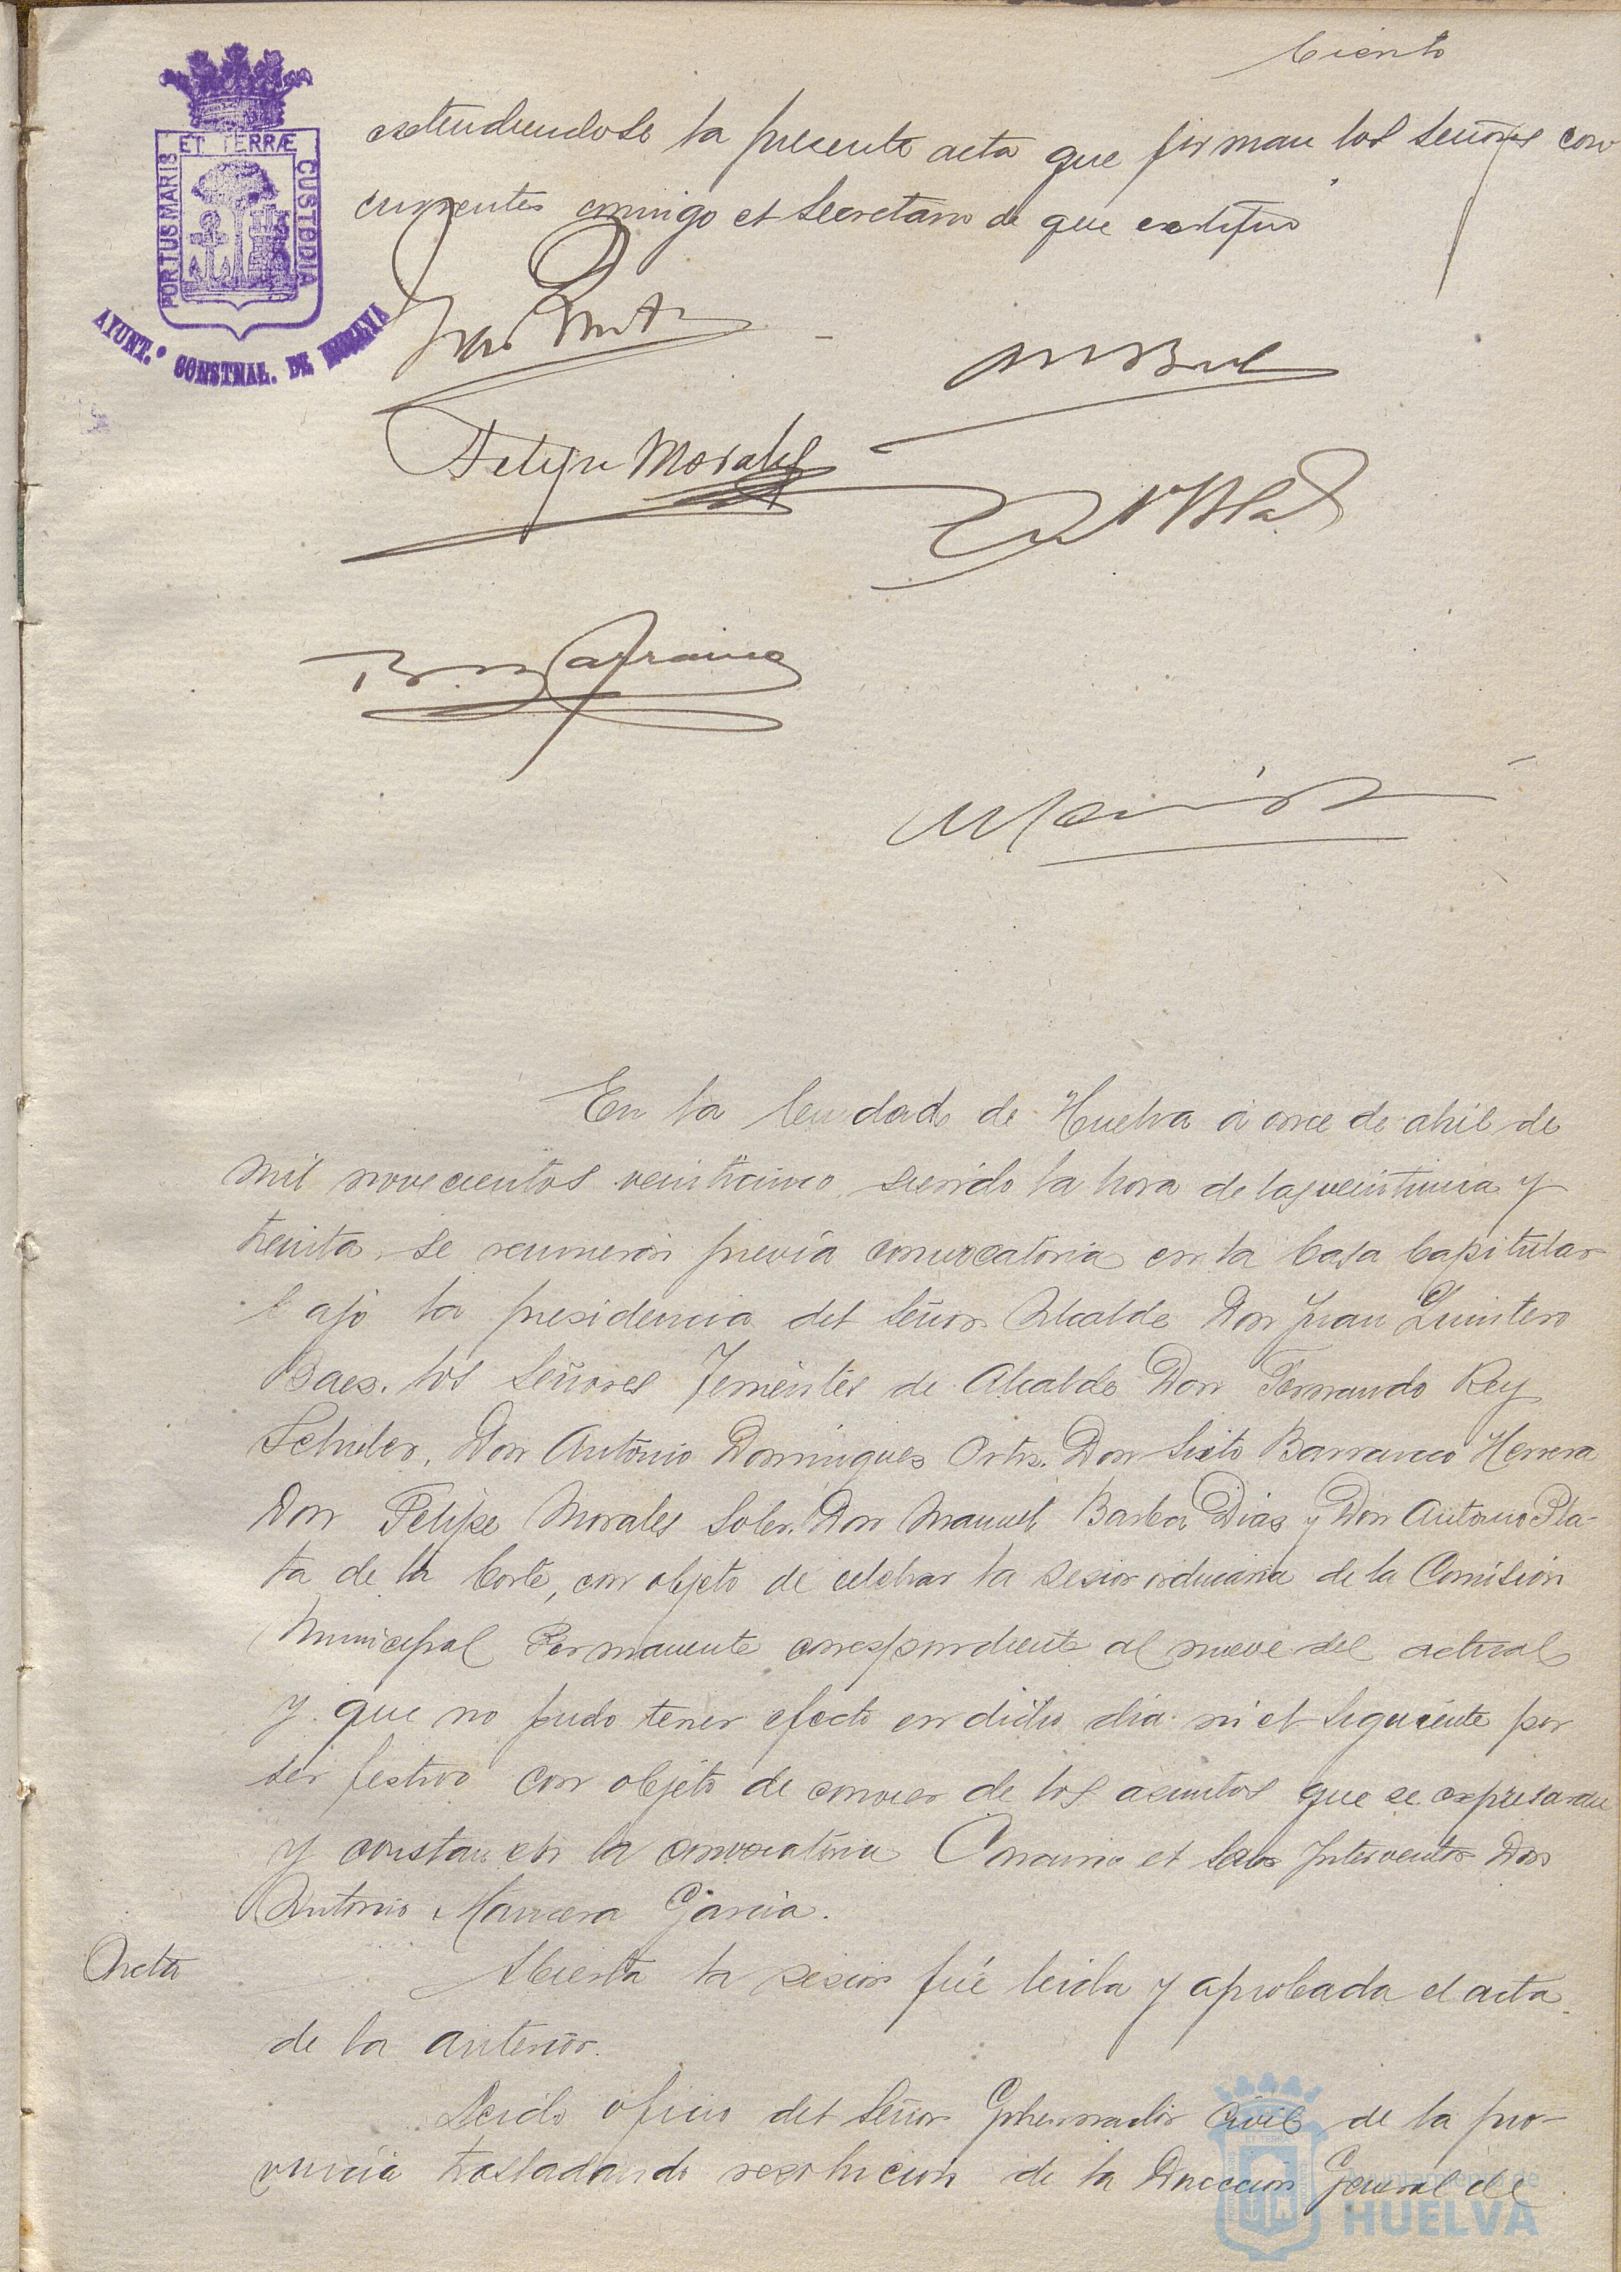 Ciento
PORTUS MARIS ET TERRÆ CUSTODIA
AYUNT.º CONSTNAL. DE HUELVA
extendiendose la presente acta que firman los señores con
currentes conmigo el Secretario de que certifico
Felipe Morales
En la Ciudad de Huelva á once de abril de
mil novecientos veinticinco, siendo la hora de las veintiuna y
treinta, se reunieron previa convocatoria en la Casa Capitular
bajo la presidencia del Señor Alcalde Don Juan Quintero
Baes. los Señores Tenientes de Alcalde Don Fernando Rey
Don Antonio Domingues Ortis. Don Sixto Barranco Herrera
Don Felipe Morales Soler. Don Manuel Barba Dias y Don Antonio Pla-
ta de la Corte, con objeto de celebrar la sesion ordinaria de la Comisión
Municipal Permanente correspondiente al nueve del actual
y que no pudo tener efecto en dicho dia ni el siguiente por
ser festivo con objeto de conocer de los asuntos que se expresaran
y constan en la convocatoria Concurrio el Señor Interventor Don
Antonio Mancera Garcia.
Acta
Abierta la sesion fué leida y aprobada el acta
de la anterior.
Leido oficio del Señor Gobernador Civil de la pro-
vincia trasladando resolucion de la Direccion General de
Ayuntamiento de
HUELVA